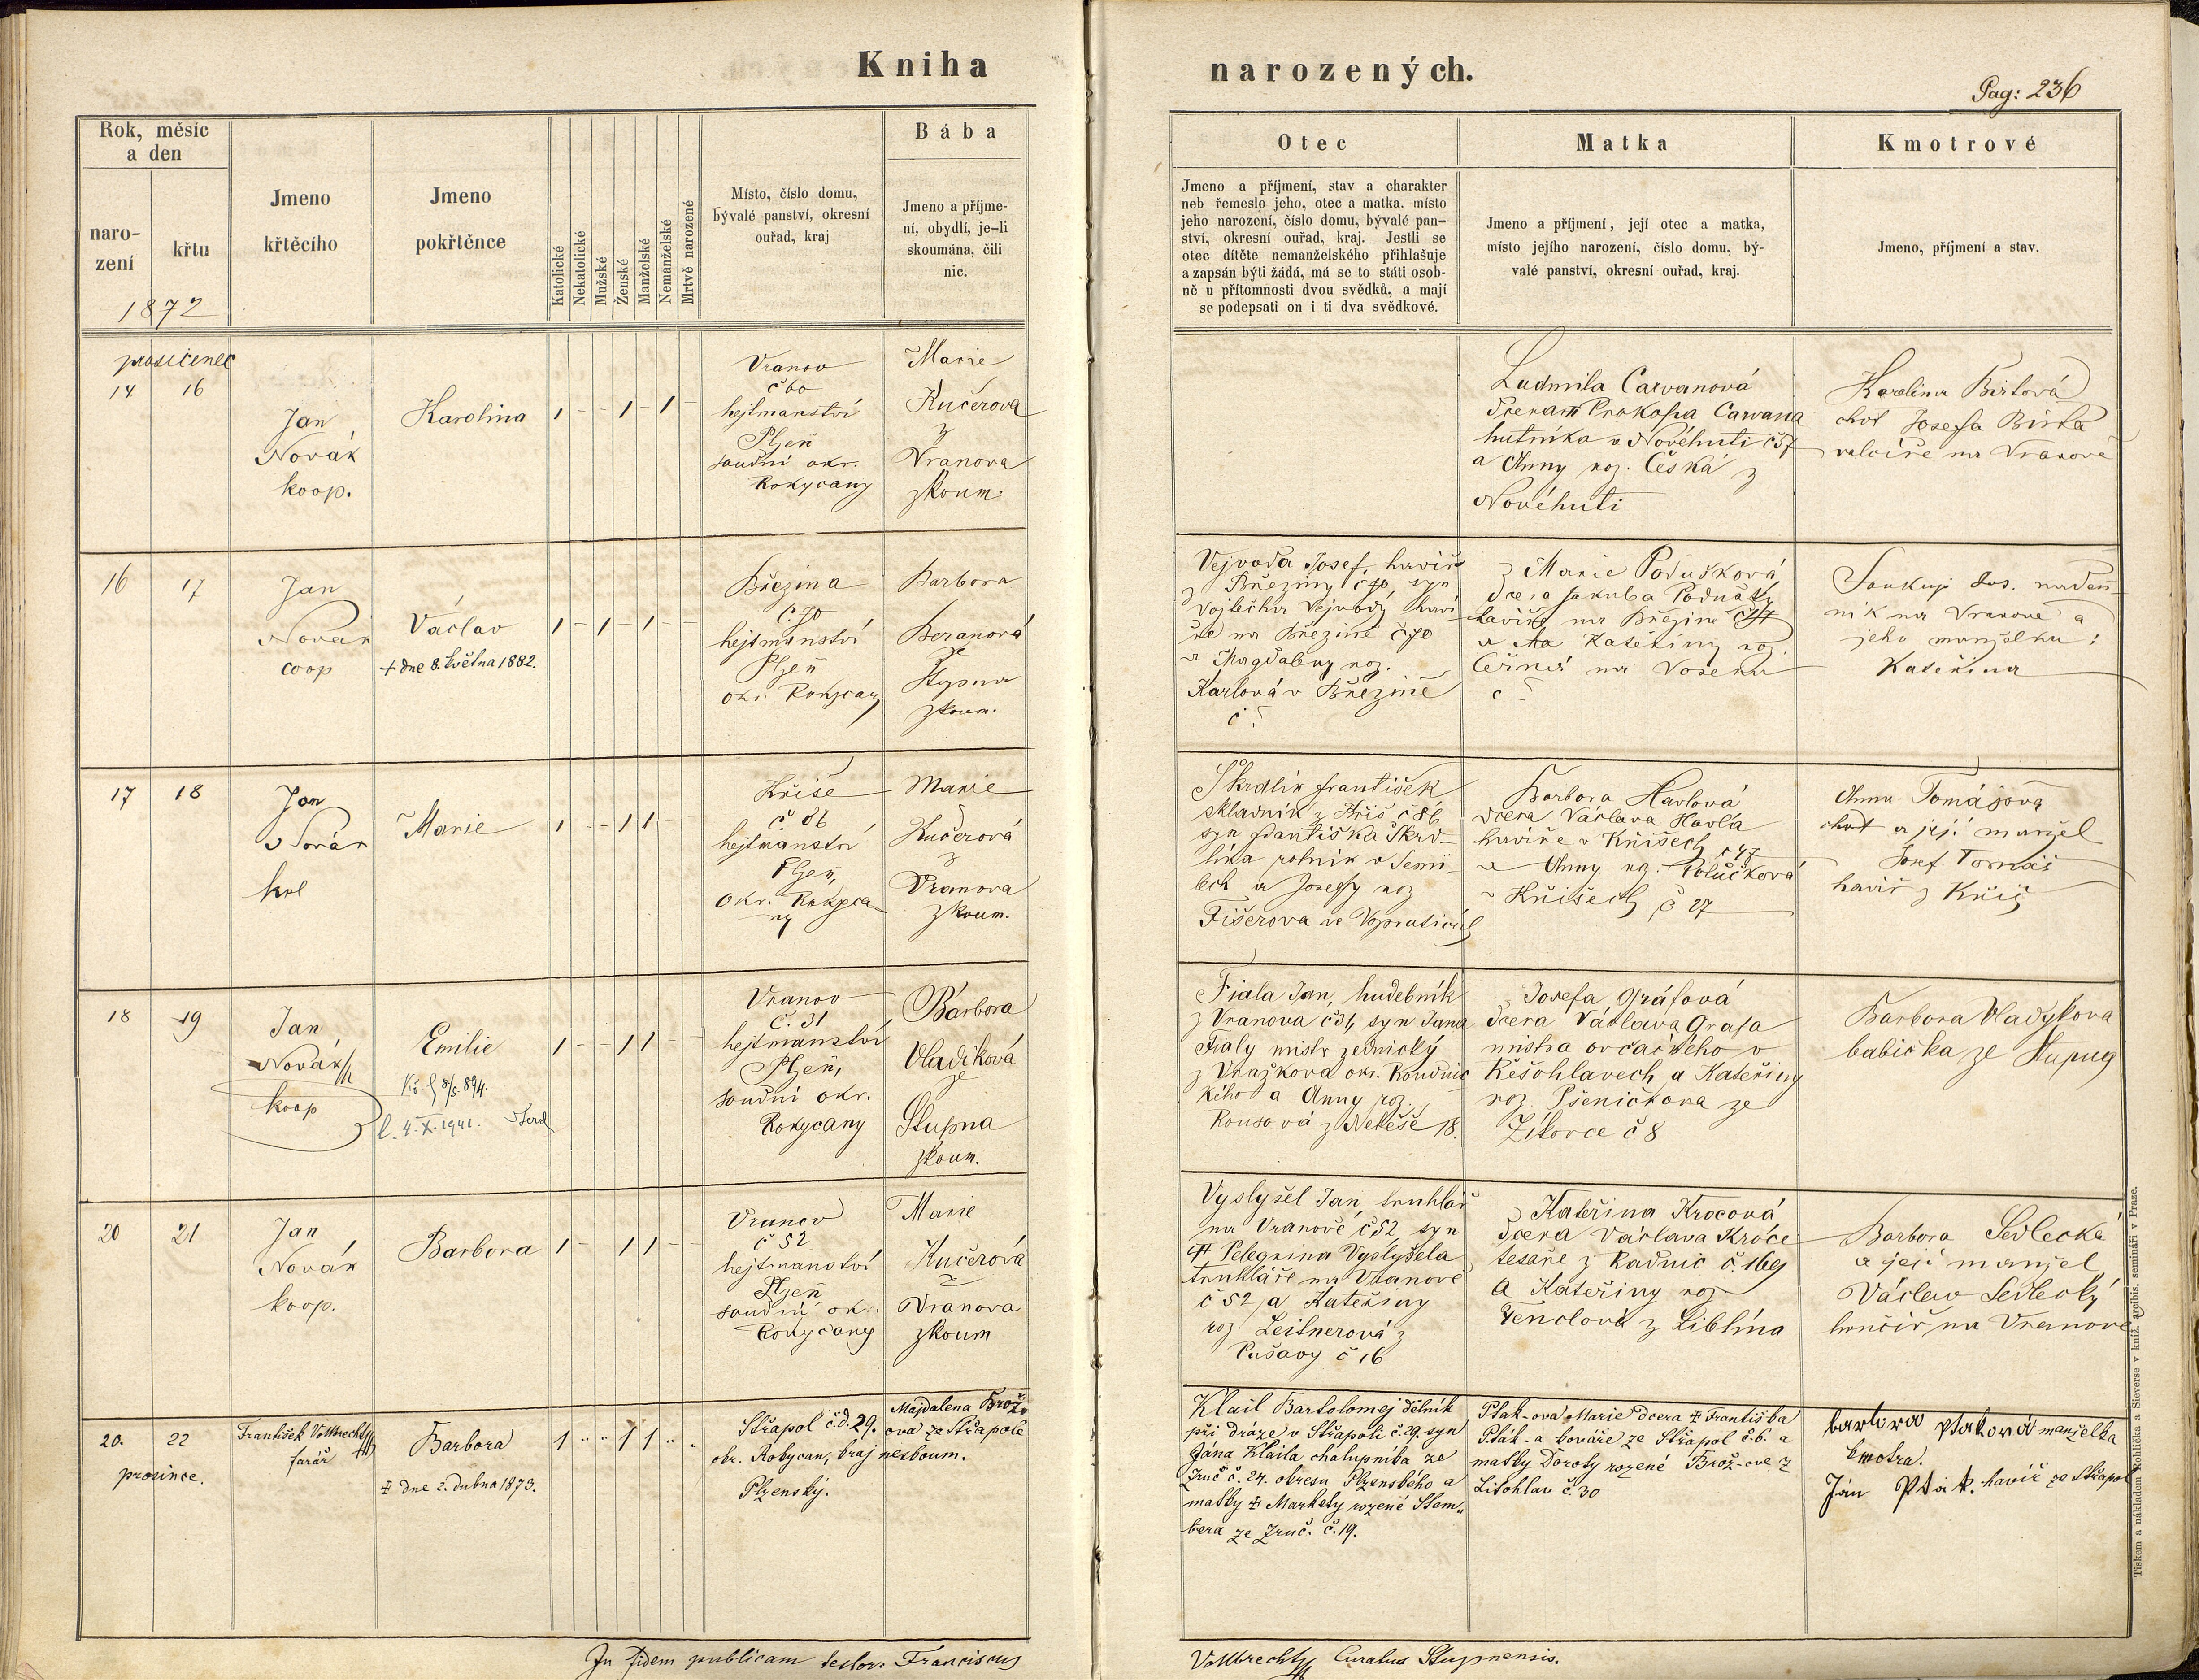 Kniha
narozených.
Pag: 236
Rok, měsíc
a den
naro-
zení
křtu
1872
Jmeno
křtěcího
Jmeno
pokřtěnce
Katolické
Nekatolické
Mužské
Ženské
Manželské
Nemanželské
Mrtvě narozené
Místo, číslo domu,
bývalé panství, okresní
ouřad, kraj
Bába
Jmeno a příjme-
ní, obydlí, je-li
skoumána, čili
nic.
Otec
Jmeno a příjmení, stav a charakter
neb řemeslo jeho, otec a matka. místo
jeho narození, číslo domu, bývalé pan-
ství, okresní ouřad, kraj. Jestli se
otec dítěte nemanželského přihlašuje
a zapsán býti žádá, má se to státi osob-
ně u přítomnosti dvou svědků, a mají
se podepsati on i ti dva svědkové.
Matka
Jmeno a příjmení, její otec a matka,
místo jejího narození, číslo domu, bý-
valé panství, okresní ouřad, kraj.
Kmotrové
Jmeno, příjmení a stav.
14 16
Jan
Novák
koop.
Karolina
1 - - 1 - 1 -
Vranov
č 60
hejtmanství
Plzeň
soudní okr.
Rokycany
Marie
Kučerova
z
Vranova
zkoum.
Ludmila Carvanová
dcera Prokopa Carvana
hutníka v Novéhuti č 57
a Anny roz. Česká z
Novéhuti
Karolina Birtová
choť Josefa Birta
na Vranově
16 17
Jan
Novák
coop
Václav
+ dne 8. května 1882.
1 - 1 - 1 - -
Březina
č. 70
hejtmanství
Plzeň
okr. Rokycany
Barbora
Beranová
ze
Stupna
zkoum.
Vejvoda Josef, havíř
z Březiny č 70 syn
Vojtěcha Vejvody haví
ře na Březině č 70
a Magdaleny roz.
Karlová v Březině
č ?
Marie Podušková
dcera Jakuba Podušky
havíře na Březině
a Kateřiny roz.
Černá na Voseku
č -
Soukup Jos.
ník na Vranově a
jeho manželka:
Kateřina
17 18
Jan
Novák
Marie
1 - - 1 1 - -
Kříše
č. 86
hejtmanství
Plzeň,
okr. Rokyca-
ny
Marie
Kučerová
z
Vranova
zkoum.
Škrdlík František
skladník z Kříš č 86,
syn Františka Škrd-
líka rolník v Semi-
lech a Josefy roz
Fišerova ve
Barbora Havlová
dcera Václava Havla
havíře v Kříšech č 47
a Anny roz.
v Kříšech č 27
Anna Tomášová
choť a její manžel
Josef Tomáš
havíř z Kříš
18 19
Jan
Novák
koop
Emilie
l. 4. X. 1941.
1 - - 1 1 - -
Vranov
č. 31
hejtmanství
Plzeň,
soudní okr.
Rokycany
Barbora
Vladiková
ze
Stupna
zkoum.
Fiala Jan, hudebník
z Vranova č 31, syn Jana
Fialy mistr zednický
z Vražkova okr. Roudnic
kého a Anny roz.
Kousová z 18.
Josefa Gráfová
dcera Václava Grafa
mistra ovčáckého v
Kešohlavech a Kateřiny
roz. Pšeničkova ze
Žikovce č 8
Barbora Vladykova
babička ze Stupna
20 21
Jan
Novák
koop.
Barbora
1 - - 1 1 - -
Vranov
č 52
hejtmanství
Plzeň
soudní okr.
Rokycany
Marie
Kučerová
z
Vranova
zkoum
Vyslyšel Jan, truhlář
na Vranově č 52, syn
Pelegrina Vyslyšela
truhláře na Vranově
č 52, a Kateřiny
roz. Leitnerová z
Pušavy č 16
Kateřina Krocová
dcera Václava Króce
tesaře z Radnic č. 169
a Kateřiny roz.
Fenclová z Liblína
Barbora Sedlecká
a její manžel
Václav Sedlecký
hrnčíř na Vranově
20. 22
prosince.
František Vollbrecht
farář
Barbora
dne 2. dubna 1873.
1 " " 1 1 " "
Střapol č.d. 29.
okr. Rokycan, kraj
Plzenský.
Majdalena Brož-
ova ze Střapole
neskoum.
Klail Bartolomej dělník
při dráze v Střapoli č. 29. syn
Jána Klaila chalupníka ze
Zruč č. 24. okresu Plzenského a
matky Markety rozené Stem-
bera ze Zruč. č. 19.
Pták-ová Marie dcera Františka
Pták-a kováře ze Střapol č. 6. a
matky Doroty rozené Brož-ové z
Litohlav č. 30
barbora Ptaková manželka
kmotra.
Ján Pták. havíř ze Střapol
In fidem publicam testor: Franciscus
Vollbrecht Curatus Stupnensis.
Tiskem a nákladem Rohlíčka a Sieverse v kníž. arcibis. semináři v Praze.